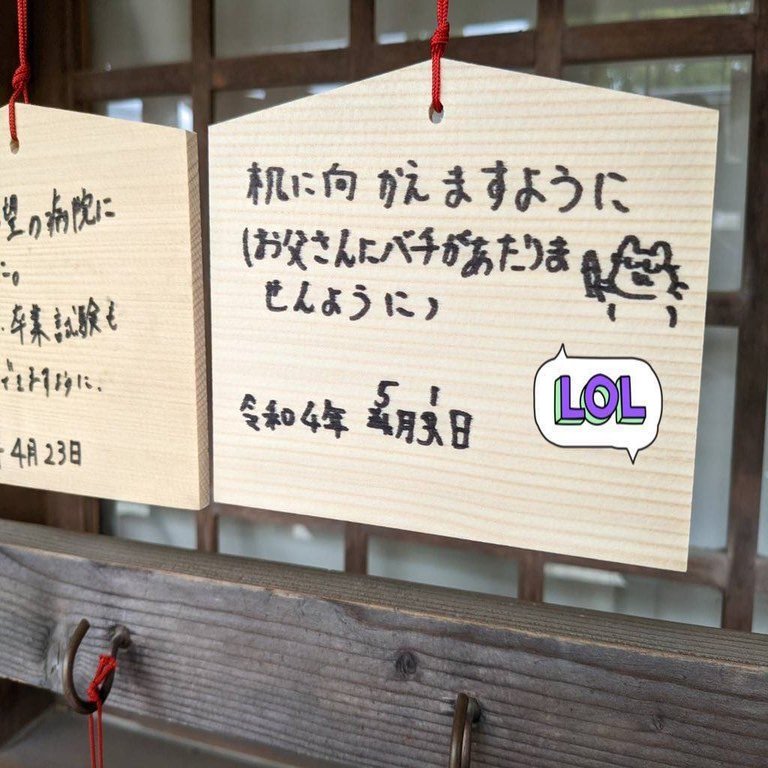 望の病院に
た。
卒業試験も
できますように。
4月23日
机に向かえますように
(お父さんにバチがあたりま
せんように)
令和4年 5月1日
LOL